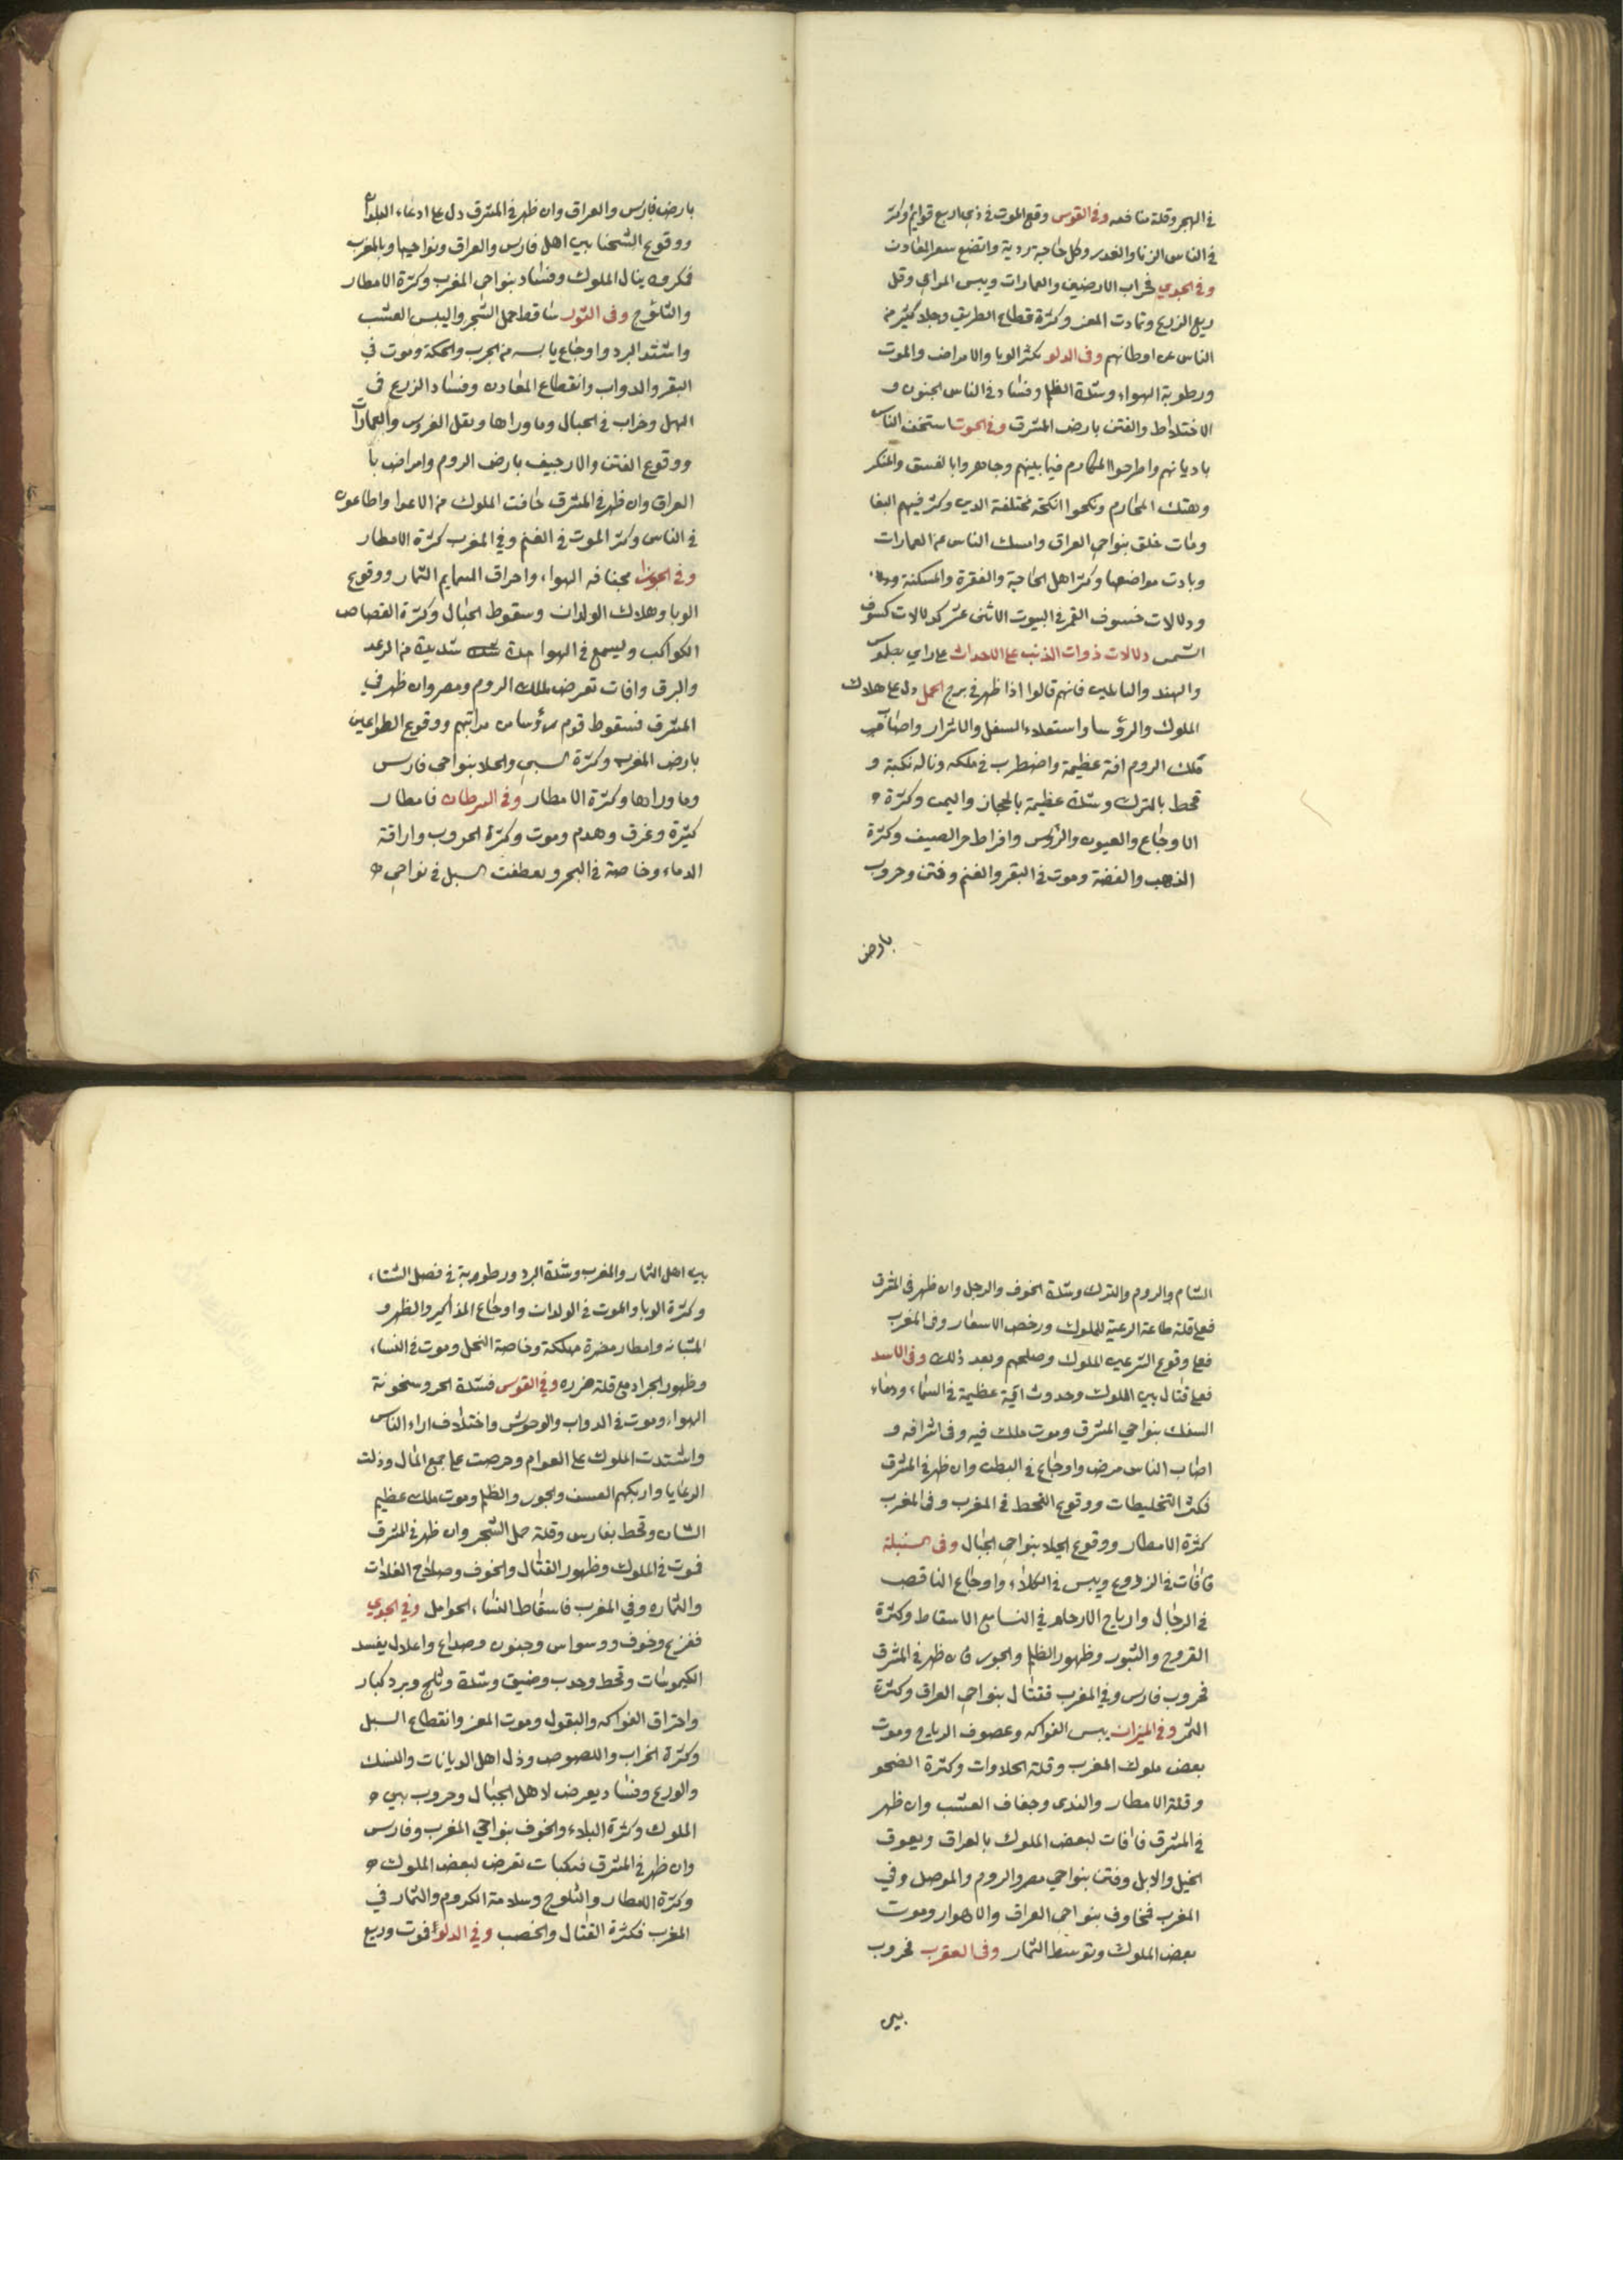 في البحر وقلة منافعه وفي القوس وقع الموت في ذي اربع قوايم وكثر
في الناس الزنا والغدر وكل حاجة ردية واتضع سعر المعادن
وفي الجدي خراب الارضين والعمارات ويبس المراعي وقل
ريع الزرع وتماوت المعز وكثرة قطاع الطريق وجلا كثير من
الناس عن اوطانهم وفي الدلو يكثر الوبا والامراض والموت
ورطوبة الهواء وشدة الظلم وفساد في الناس الجنون و
الاختلاط والفتن بارض المشرق وفي الحوت استخف الناس
باديانهم واطرحوا المكارم فيما بينهم وجاهروا بالفسق والمنكر
وهتك المحارم ونكحوا انكحة مختلفة الدين وكثر فيهم البغا
ومات خلق بنواحي العراق وامسك الناس عن العمارات
وبادت مواضعها وكثر اهل الحاجة والفقرة والمسكنة
ودلالات خسوف القمر في البيوت الاثنى عشر كدلالات كسوف
الشمس دلالات ذوات الذنب على الاحداث على راي بطلموس
والهند والبابليين فانهم قالوا اذا ظهر في برج الحمل دل على هلاك
الملوك والرؤسا واستعلاء السفل والاشرار واصابت
ملك الروم افة عظيمة واضطرب في ملكه وناله نكبة و
قحط بالترك وشدة عظيمة بالحجاز واليمن وكثرة
الاوجاع والعيون والرؤس وافراط حر الصيف وكثرة
الذهب والفضة وموت في البقر والغنم وفتن وحروب
بارض
بارض فارس والعراق وان ظهر في المشرق دل على ادعاء البلدان
ووقوع الشحنا بين اهل فارس والعراق ونواحيها وبالمغرب
فمكروه ينال الملوك وفساد بنواحي المغرب وكثرة الامطار
والثلوج وفي الثور تساقط حمل الشجر واليبس العشب
واشتد البرد واوجاع يابسه من الجرب والحكة وموت في
البقر والدواب وانقطاع المعادن وفساد الزرع في
الهل وخراب في الجبال وما وراها وبقل الغروس والعمارات
ووقوع الفتن والارجيف بارض الروم وامراض با
العراق وان ظهر في المشرق خافت الملوك من الاعدا واطاعون
في الناس وكثر الموت في الغنم وفي المغرب كثرة الامطار
وفي الجوزا مجنافه الهواء واحراق السمايم الثمار ووقوع
الوبا وهلاك الولدان وسقوط الحبال وكثرة القصاص
الكواكب وليسمع في الهوا حدة شديدة من الرعد
والبرق وافات تعرض لملك الروم ومصر وان ظهر في
المشرق فسقوط قوم رؤسا من مراتبهم ووقوع الطواعين
بارض المغرب وكثرة السبي والجلا بنواحي فارس
وما وراها وكثرة الامطار وفي السرطان فامطار
كثيرة وغرق وهدم وموت وكثرة الحروب واراقة
الدماء وخاصة في البحر و السبل في نواحي
الشام والروم والترك وشدة الخوف والوجل وان ظهر في المشرق
فعلى قلة طاعة الرعية للملوك ورخص الاسعار وفي المغرب
فعلى وقوع الشر بين الملوك وصلحهم وبعد ذلك وفي الاسد
فعلى قتال بين الملوك وحدوث اية عظيمة في السماء ودماء
السفك بنواحي المشرق وموت ملك فيه وفي اشرافه و
اصاب الناس مرض واوجاع في البطن وان ظهر في المشرق
فكثرة التخليطات ووقوع القحط في المغرب وفي المغرب
كثرة الامطار ووقوع الجلا بنواحي الجبال وفي السنبلة
فافات في الزروع ويبس في الكلاء واوجاع الناقصب
في الرجال وارياح الارحام في النسا مع الاسقاط وكثرة
القروح والبثور وظهور الظلم والجور فان ظهر في المشرق
فحروب فارس وفي المغرب فقتال بنواحي العراق وكثرة
الثمر وفي الميزان يبس الفواكه وعصوف الرياح وموت
بعض ملوك المغرب وقلة الحلاوات وكثرة الضحو
وقلة الامطار والندى وجفاف العشب وان ظهر
في المشرق فافات لبعض الملوك بالعراق ويعوق
الخيل والابل وفتن بنواحي مصر والروم والموصل وفي
المغرب فمخاوف بنواحي العراق والاهواز وموت
بعض الملوك وتوسط الثمار وفي العقرب فحروب
بين
بين اهل الثمار والمغرب وشدة البرد ورطوبة في فصل الشتاء
وكثرة الوبا والموت في الولدان واوجاع المذاكير والظهر و
المثانه وامطار مضرة مهلكة وخاصة النحل وموت في النساء
وظهور الجراد مع قلة ضرره وفي القوس فشدة الحر وسخونة
الهواء وموت في الدواب والوحوش واختلاف اراء الناس
واشتدت الملوك على العوام وحرصت على جمع المال وذلت
الرعايا واربكهم العسف والجور والظلم وموت ملك عظيم
الشان وقحط بفارس وقلة حمل الشجر وان ظهر في المشرق
فموت في الملوك وظهور القتال والخوف وصلاح الغلات
والثماره وفي المغرب فاسقاط النساء الحوامل وفي الجدي
ففزع وخوف ووسواس وجنون وصداع واعلال يفسد
الكيموسات وقحط وجدب وضيق وشدة وثلج وبرد كبار
واحتراق الفواكه والبقول وموت المعز وانقطاع السبل
وكثرة الخراب واللصوص وذل اهل الديانات والنسك
والورع وفساد يعرض لاهل الجبال وحروب بين
الملوك وكثرة البلاء والخوف بنواحي المغرب وفارس
وان ظهر في المشرق فنكبات تعرض لبعض الملوك
وكثرة الامطار والثلوج وسلامة الكروم والثمار في
المغرب فكثرة القتال والخصب وفي الدلو فموت وريع